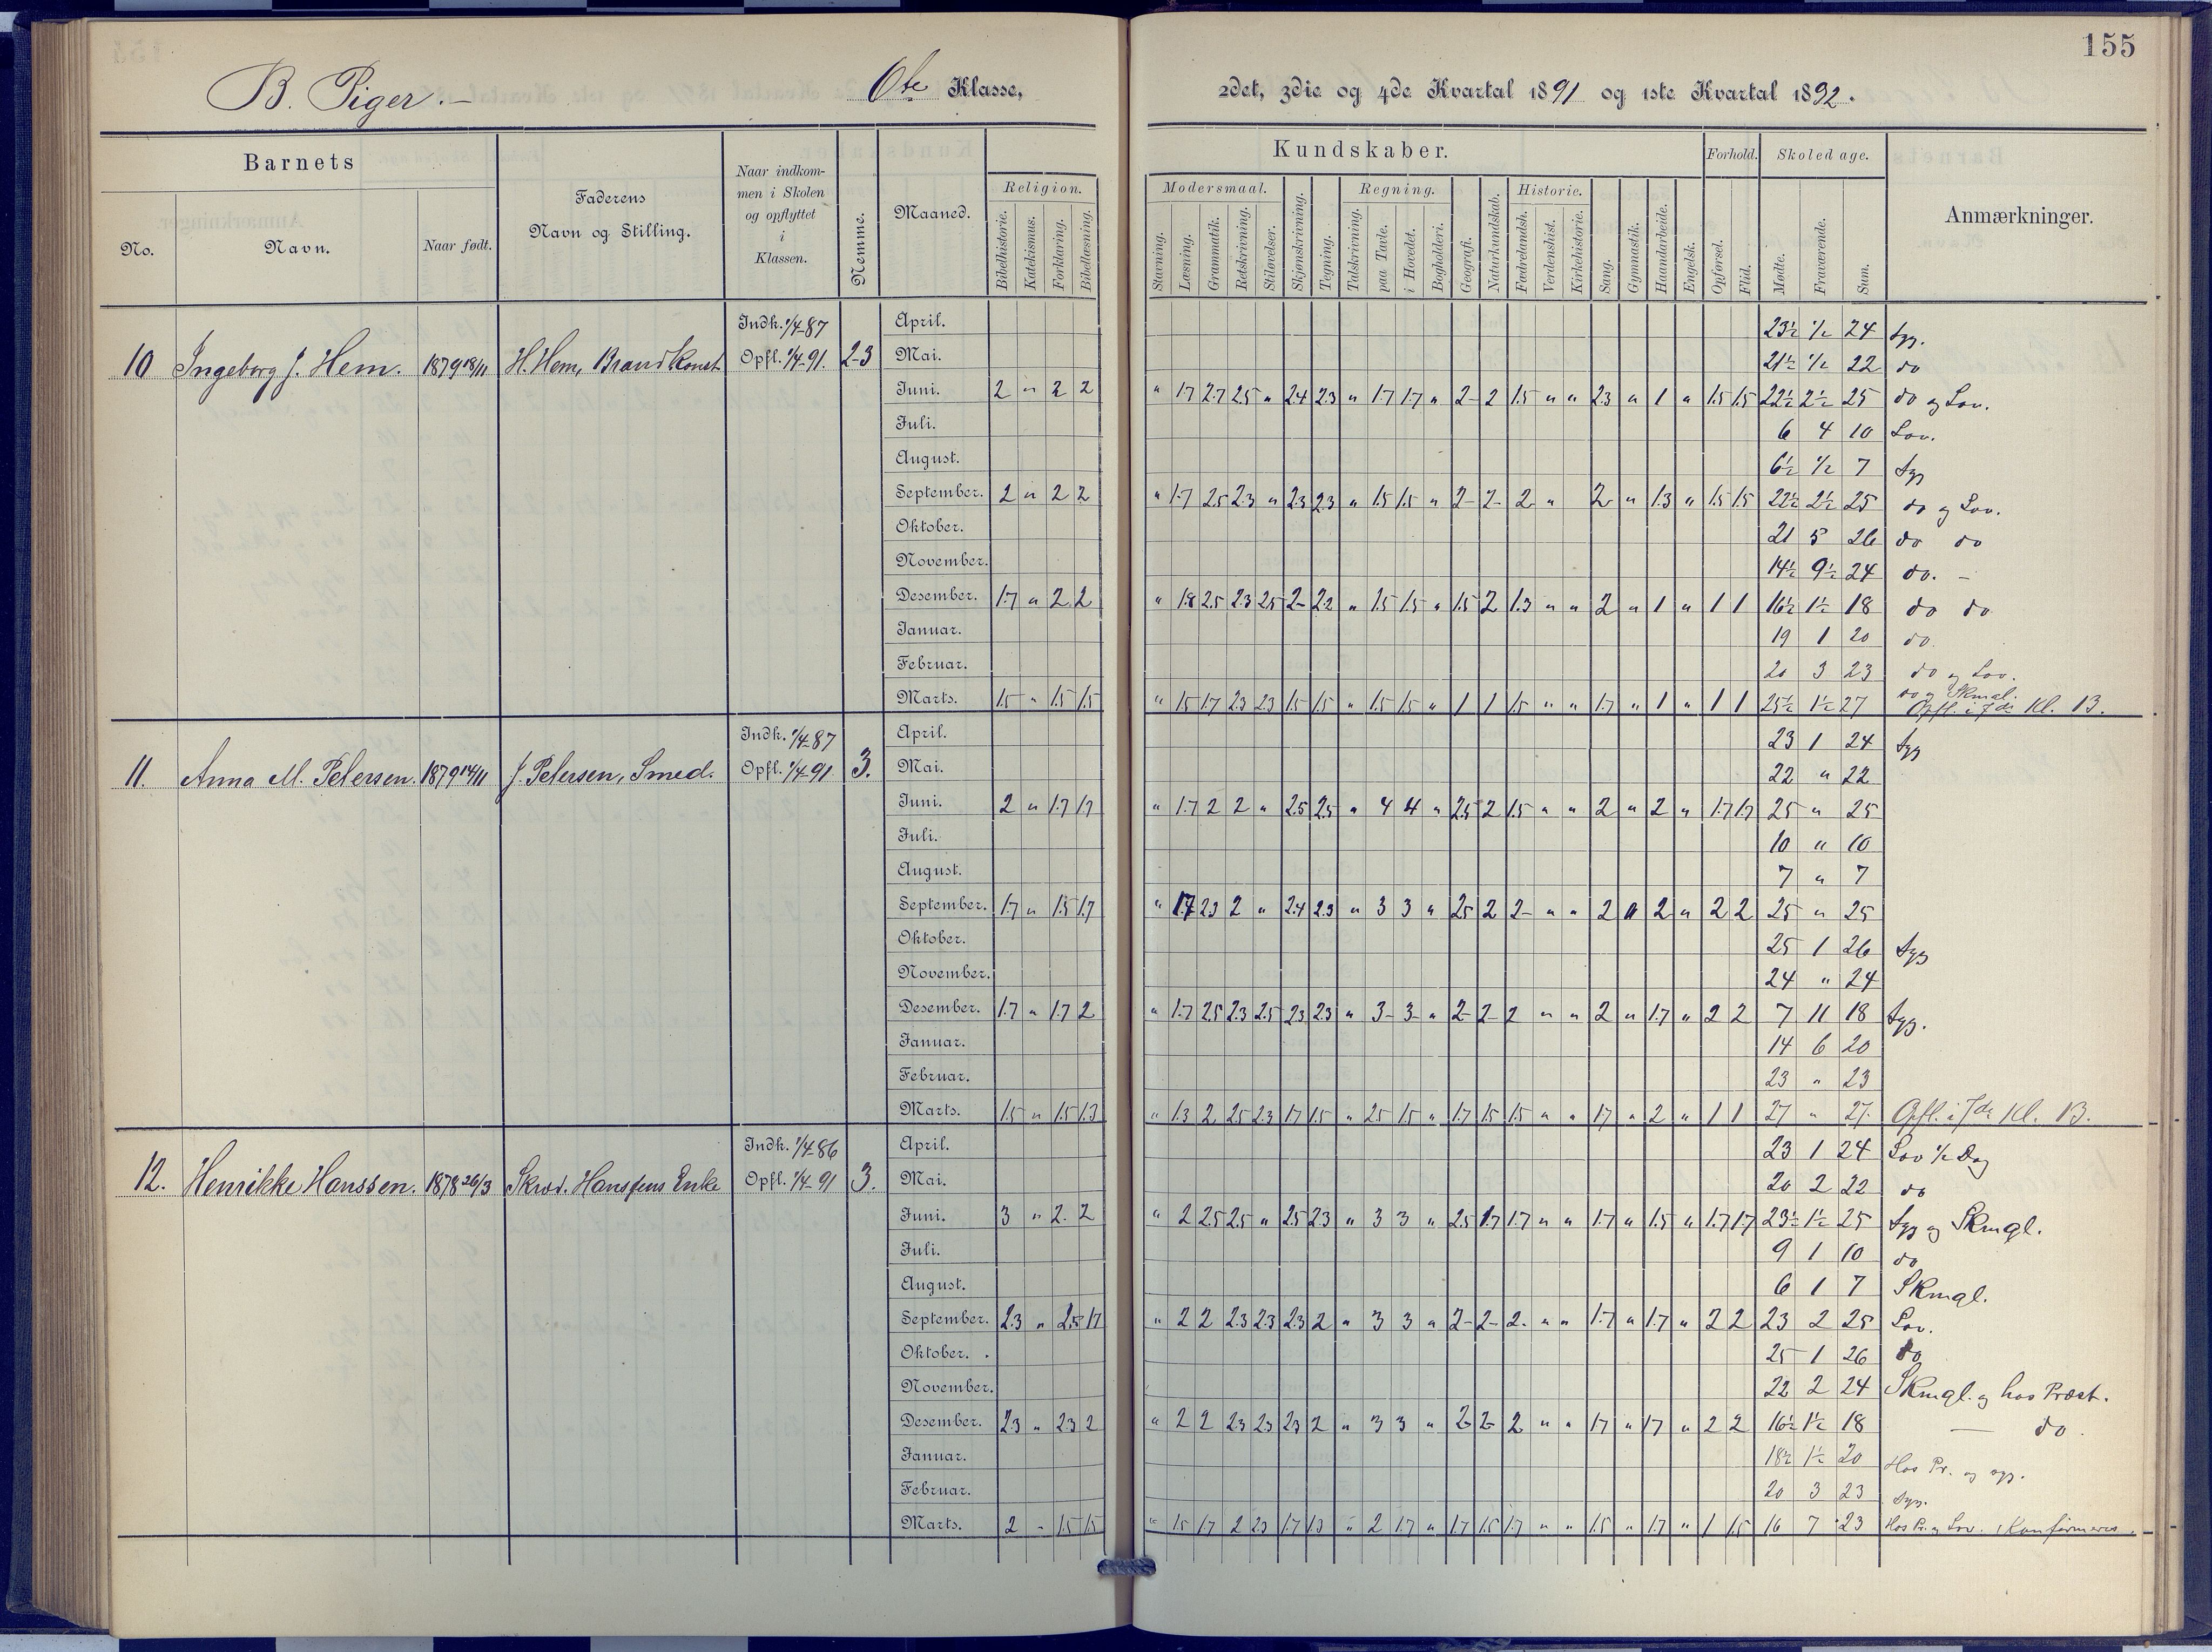 155
B. Piger.
6te Klasse,
2det, 3die og 4de Kvartal 1891 og 1ste Kvartal 1892.
Barnets
No.
Navn.
Naar født.
Faderens
Navn og Stilling.
Naar indkom-
men i Skolen
og opflyttet
i
Klassen.
Nemme.
Maaned.
Kundskaber.
Religion.
Bibelhistorie. Katekismus. Forklaring. Bibellæsning.
Modersmaal.
Stavning. Læsning. Grammatik. Retskrivning. Stiløvelser.
Skjønskrivning. Tegning.
Regning.
Talskrivning. paa Tavle. i Hovedet. Bogholderi.
Geografi. Naturkundskab.
Historie.
Fædrelandsh. Verdenshist. Kirkehistorie.
Sang. Gymnastik. Haandarbeide. Engelsk.
Forhold.
Opførsel. Flid.
Skoledage.
Mødte. Fraværende. Sum.
Anmærkninger.
10 Ingeborg J. Hem. 1879 18/11 H. Hem, Brandkonst. Indk. 1/4-87 Opfl. 1/4-91. 2-3
April. 23½ ½ 24 Syg.
Mai. 21½ ½ 22 do
Juni. 2 " 2 2 " 1.7 2.7 2.5 " 2.4 2.3 " 1.7 1.7 " 2 2 1.5 " " 2.3 " 1 " 1.5 1.5 22½ 2½ 25 do og Lov.
Juli. 6 4 10 Lov.
August. 6½ ½ 7 Syg
September. 2 " 2 2 " 1.7 2.5 2.3 " 2.3 2.3 " 1.5 1.5 " 2 2 2 " 2 " 1.3 " 1.5 1.5 22½ 2½ 25 do og Lov.
Oktober. 21 5 26 do do
November. 14½ 9½ 24 do. -
Desember. 1.7 " 2 2 " 1.8 2.5 2.3 2.5 2 2.2 " 1.5 1.5 " 1.5 2 1.3 " " 2 " 1 " 1 1 16½ 1½ 18 do do
Januar. 19 1 20 do.
Februar. 20 3 23 do og Lov.
Marts. 1.5 " 1.5 1.5 " 1.5 1.7 2.3 2.3 1.5 1.5 " 1.5 1.5 " 1 1 1.5 " " 1.7 " 1 " 1 1 25½ 1½ 27 do og Skmgl.
Opfl. i 7de Kl. B.
11. Anna M. Petersen. 1879 14/11 J. Petersen, Smed. Indk. 1/4-87 Opfl. 1/4-91 3.
April. 23 1 24 Syg
Mai. 22 " 22
Juni. 2 " 1.7 1.7 " 1.7 2 2 " 2.5 2.5 " 4 4 " 2.5 2 1.5 " " 2 " 2 " 1.7 1.7 25 " 25
Juli. 10 " 10
August. 7 " 7
September. 1.7 " 1.5 1.7 " 1.7 2.3 2 " 2.4 2.3 " 3 3 " 2.5 2 2 " " 2 " 2 " 2 2 25 " 25
Oktober. 25 1 26 Syg
November. 24 " 24
Desember. 1.7 " 1.7 2 " 1.7 2.5 2.3 2.5 2.3 2.3 " 3 3 " 2 2 2 " " 2 " 1.7 " 2 2 7 11 18 Syg.
Januar. 14 6 20
Februar. 23 " 23
Marts. 1.5 " 1.5 1.3 " 1.3 2 2.5 2.3 1.7 1.5 " 2.5 1.5 " 1.7 1.5 1.5 " " 1.7 " 2 " 1 1 27 " 27. Opfl. i 7de Kl. B.
12. Henrikke Hanssen. 1878 26/3 Skræd. Hanssens Enke Indk. 1/4-86 Opfl. 1/4-91 3.
April. 23 1 24 Lov ½ Dag
Mai. 20 2 22 do
Juni. 3 " 2. 2 " 2 2.5 2.5 " 2.5 2.3 " 3 3 " 2.5 1.7 1.7 " " 1.7 " 1.5 " 1.7 1.7 23½ 1½ 25 Syg og Skmgl.
Juli. 9 1 10 do
August. 6 1 7 Skmgl.
September. 2.3 " 2.5 1.7 " 2 2 2.3 2.3 2.3 2 " 3 3 " 2 2 2. " " 1.7 " 1.7 " 2 2 23 2 25 Lov.
Oktober. 25 1 26 do
November. 22 2 24 Skmgl. og hos Præst.
Desember. 2.3 " 2.3 2 " 2 2 2.3 2.3 2.3 2 " 3 3 " 2 2 2 " " 1.7 " 1.7 " 2 2 16½ 1½ 18 — do.
Januar. 18½ 1½ 20 Hos Pr. og syg.
Februar. 20 3 23 Syg.
Marts. 2 " 1.5 1.5 " 1.5 1.7 2 2.3 1.7 1.3 " 2 1.7 " 1.7 1.5 1.7 " " 1.5 " 1.7 " 1 1.5 16 7 23 Hos Pr. og Lov. Konfirmeres.